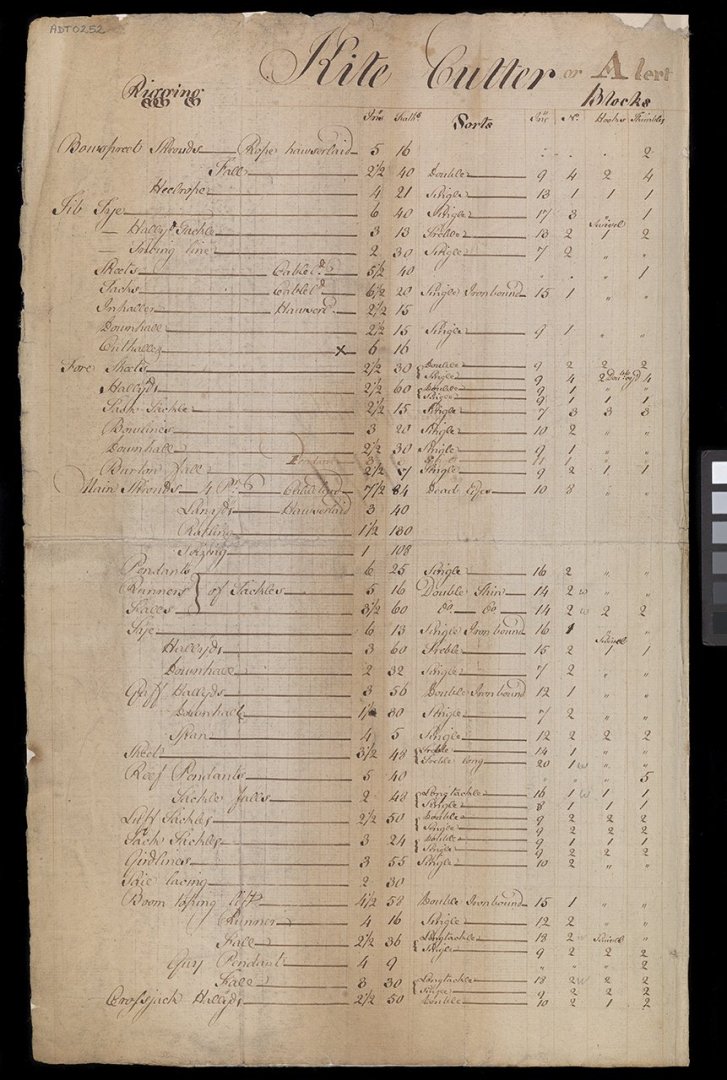 ADT0252
Kite Cutter or Alert
Rigging Blocks
Ins Fath.s Sorts Ins No. Hooks Thimbles
Bowspreet Shrouds Rope hawserlaid 5 16 2
Fall 2½ 40 Double 9 4 2 4
Heelrope 4 21 Single 13 1 1 1
Jib Tye 6 40 Single 17 3 " 1
Swivel
— Hally.ds Tackle 3 13 Treble 13 2 1 2
— Sizing line 2 30 Single 7 2 " "
Sheets Cablel.d 5½ 40 " " " 1
Tacks Cablel.d 6½ 20 Single Ironbound 15 1 " "
Inhaller Hawserl.d 2½ 15
Downhall 2½ 15 Single 9 1 " "
Outhaller x 6 16
Fore Sheets 2½ 30 Double 9 2 2 2
Single 9 4 2 4
Hallyds 2½ 60 Double 9 1 " "
Single 9 1 1 1
Tack Tackle 2½ 15 Single 7 3 3 3
Bowlines 3 20 Single 10 2 " "
Downhall 2½ 30 Single 9 1 " "
Pendant 3
Burton Fall 2½ Single 9 2 1 1
Main Shrouds 4 Prs Cablelaid 7½ 84 Dead Eyes 10 8 " "
Lanyds Hawserlaid 3 40
Ratling 1½ 130
Seizing 1 108
Pendants 6 25 Single 16 2 " "
Runners } of Tackles 5 16 Double Thin 14 2 w " "
Falls 3½ 60 Do Do 14 2 w 2 2
Tye 6 13 Single Ironbound 16 1 " "
Swivel
Hallyds 3 60 Treble 15 2 1 1
Downhall 2 32 Single 7 2 " "
Gaff Hallyds 3 56 Double Ironbound 12 1 " "
Downhall 1½ 30 Single 7 2 " "
Span 4 5 Single 12 2 2 2
Sheet 3½ 48 Treble 14 1 " "
Treble long 20 1 w " "
Reef Pendants 5 40 " " " 5
Tackle falls 2 48 Longtackle 16 1 w 1 1
Single 8 1 1 1
Luff Tackles 2½ 50 Double 9 2 2 2
Single 9 2 2 2
Tack Tackles 3 24 Double 9 1 1 1
Single 9 2 2 2
Girdlines 3 55 Single 10 2 " "
Saie lacing 2 30
Boom toping lift 4½ 58 Double Ironbound 15 1 " "
Runner 4 16 Single 12 2 " "
Fall 2½ 36 Longtackle 18 2 w Swivel "
Single 9 2 2 2
Guy Pendant 4 9 " " " 2
Fall 3 30 Longtackle 18 2 w 2 2
Single 9 2 2 2
Crossjack Hallyds 2½ 50 Double 10 2 1 2